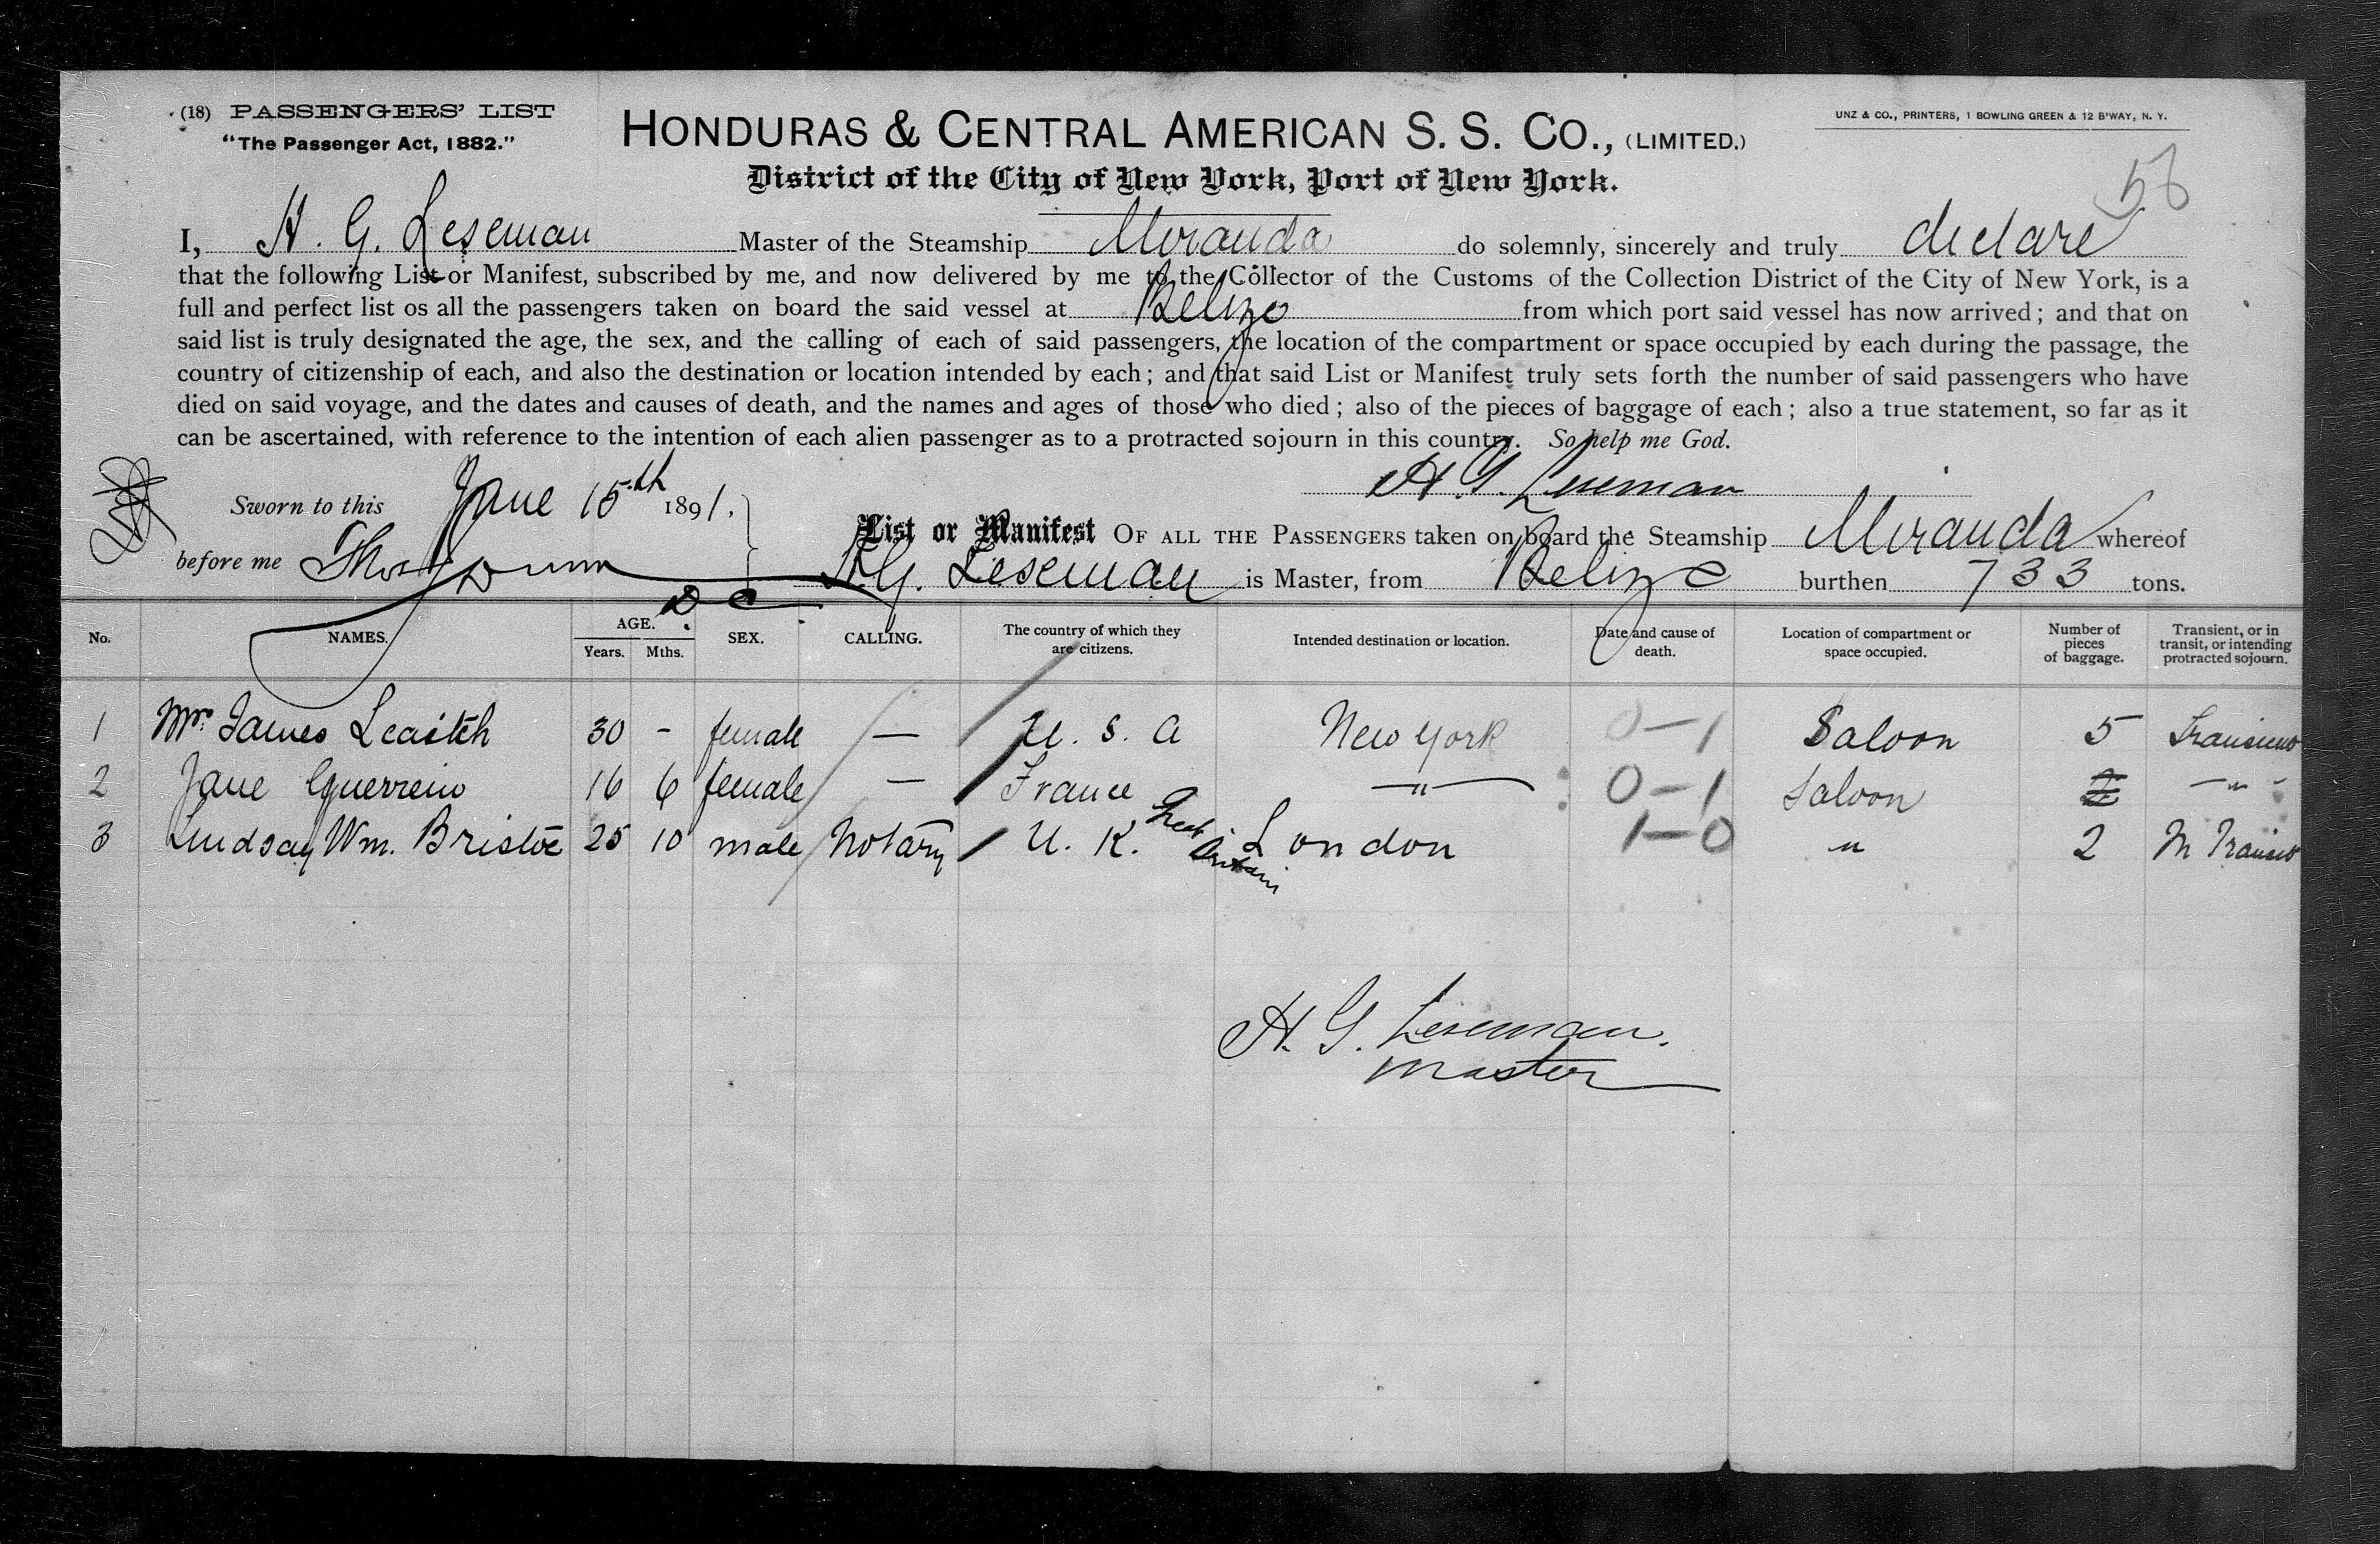 (18) PASSENGERS' LIST
"The Passenger Act, 1882."
HONDURAS & CENTRAL AMERICAN S. S. CO., (LIMITED.)
UNZ & CO., PRINTERS, 1 BOWLING GREEN & 12 B'WAY, N. Y.
District of the City of New York, Port of New York.
I, H. G. Leseman Master of the Steamship Miranda do solemnly, sincerely and truly declare
that the following List or Manifest, subscribed by me, and now delivered by me to the Collector of the Customs of the Collection District of the City of New York, is a
full and perfect list os all the passengers taken on board the said vessel at Belize from which port said vessel has now arrived; and that on
said list is truly designated the age, the sex, and the calling of each of said passengers, the location of the compartment or space occupied by each during the passage, the
country of citizenship of each, and also the destination or location intended by each; and that said List or Manifest truly sets forth the number of said passengers who have
died on said voyage, and the dates and causes of death, and the names and ages of those who died; also of the pieces of baggage of each; also a true statement, so far as it
can be ascertained, with reference to the intention of each alien passenger as to a protracted sojourn in this country. So help me God.
H. G. Leseman
Sworn to this June 15th 1891.
before me Thos Dunn
D C
List or Manifest OF ALL THE PASSENGERS taken on board the Steamship Miranda whereof
H. G. Leseman is Master, from Belize burthen 733 tons.
No. NAMES. AGE. Years. Mths. SEX. CALLING. The country of which they are citizens. Intended destination or location. Date and cause of death. Location of compartment or space occupied. Number of pieces of baggage. Transient, or in transit, or intending protracted sojourn.
1 Mrs James Leaitch 30 - female — U. S. A New York 0-1 Saloon 5 Transient
2 Jane Guerreiro 16 6 female — France " 0-1 Saloon "
3 Lindsay Wm. Bristoe 25 10 male Notary U. K. Great Britain London 1-0 " 2 In Transit
H. G. Leseman.
Master